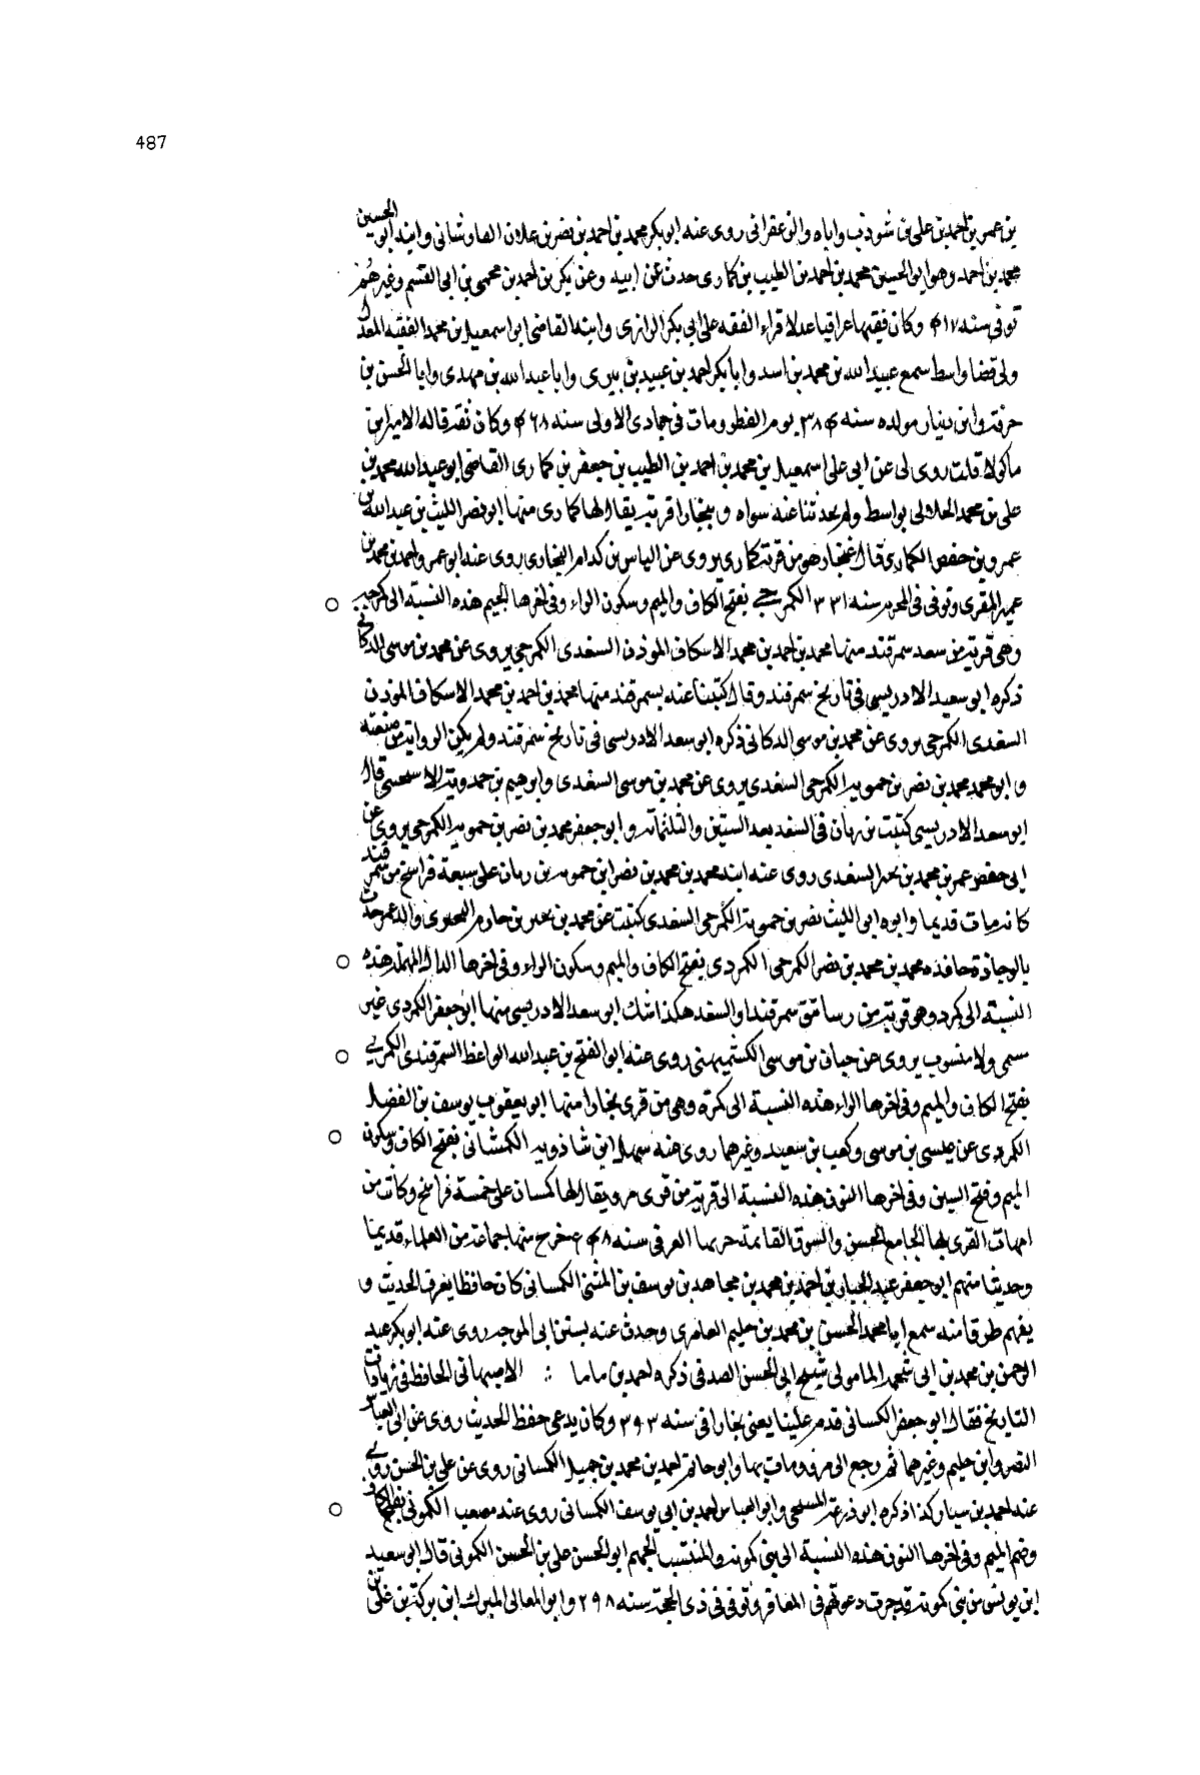 487
بن عمر بن احمد بن علی بن شوذب واباه والزعفرانی روی عنه ابو بکر محمد بن احمد بن نصر بن علان الفاوشانی وابنه ابو الحسین
محمد بن احمد وهو ابو الحسین محمد بن احمد بن الطیب بن کماری حدث عن ابیه وعن بکر بن احمد بن محمی بن ابی القسم وغیرهم
توفی سنه ۴۱۷ وکان فقیها عراقیا عدلا قراء الفقه علی ابی بکر الرازی وابنه القاضی ابو اسمعیل بن محمد الفقیه المعدل
ولی قضا واسط سمع عبید الله بن محمد بن اسد وابا بکر احمد بن عبید بن بیری وابا عبد الله بن مهدی وابا الحسن بن
حزفة وابن دینار مولده سنه ۳۸۴ یوم الفطر ومات فی جمادی الاولی سنه ۴۶۸ وکان نقد قاله الامیر ابن
ماکولا قلت روی لی عن ابی علی اسمعیل بن محمد بن احمد بن الطیب بن جعفر بن کماری القاضی ابو عبد الله محمد بن
علی بن محمد الجلالی بواسط ولم یحدثنا عنه سواه وببخارا قریة یقال لها کماری منها ابو نصر اللیث بن عبد الله بن
عمرو بن حفص الکماری قال غنجار هو من قریة کماری یروی عن الیاس بن کدام البخاری روی عنه ابو عمرو احمد بن محمد بن
عمیر المقری وتوفی فی المحرم سنه ۳۳۱ الکمرجی بفتح الکاف والمیم وسکون الراء وفی اخرها الجیم هذه النسبة الی کمرجه
وهی قریة من سعد سمرقند منها محمد بن احمد بن محمد الاسکاف المؤذن السغدی الکمرجی یروی عن محمد بن موسی الدکانی
ذکره ابو سعید الادریسی فی تاریخ سمرقند وقال کتبنا عنه بسمرقند منها محمد بن احمد بن محمد الاسکاف المؤذن
السغدی الکمرجی یروی عن محمد بن موسی الدکانی ذکره ابو سعد الادریسی فی تاریخ سمرقند ولم یکن الروایة من صنعته
وابو محمد محمد بن نصر بن حمویه الکمرجی السغدی یروی عن محمد بن موسی السغدی وابرهیم بن حمدویة قال
ابو سعد الادریسی کتبت بن رمان فی السغد بعد الستین والثلثمائة وابو جعفر محمد بن نصر بن حمویه الکمرجی یروی عن
ابی حفص عمر بن محمد بن بحیر السغدی روی عنه ابنه محمد بن محمد بن نصر ابن حمویه بن رمان علی سبعة فراسخ من سمرقند
کانه مات قدیما وابوه ابی اللیث نصر بن حمویة الکمرجی السغدی کتبت عن محمد بن بحیر بن حازم البحیری والد عمر حدث
بالوجاذة حافده محمد بن محمد بن نصر الکمرجی الکمردی بفتح الکاف والمیم وسکون الراء وفی اخرها الدال المهملة هذه
النسبة الی کمرد وهو قریة من رساتیق سمرقند او السغد هکذا شک ابو سعد الادریسی منها ابو جعفر الکمردی غیر
مسمی ولا منسوب یروی عن حبان بن موسی الکشمیهنی روی عنه ابو الفتح بن عبد الله الواعظ السمرقندی الکمری
بفتح الکاف والمیم وفی اخرها الراء هذه النسبة الی کمرة وهی من قری بخارا منها ابو یعقوب یوسف بن الفضل
الکمردی عن عیسی بن موسی وکعب بن سعید وغیرهما روی عنه سهل ابن شاذویه الکمشانی بفتح الکاف وسکون
المیم وفتح السین وفی اخرها النون هذه النسبة الی قریة من قری مرو یقال لها کمسان علی خمسة فراسخ وکانت من
امهات القری بها الجامع الحسن والسوق القائمة خربها الغز فی سنه خرج منها جماعة من العلماء قدیما
وحدیثا منهم ابو جعفر عبد الجبار بن احمد بن محمد بن مجاهد بن یوسف بن المثنی الکمسانی کان حافظا یعرف الحدیث و
یفهم طرقا منه سمع ابا محمد الحسن بن محمد بن حلیم العامری وحدث عنه بسنن ابی الموجه روی عنه ابو بکر عبد
الرحمن بن محمد بن ابی شحمه المامونی شیخ ابی الحسن الصدفی ذکره احمد بن ماما ∴ الاصبهانی الحافظ فی زیادات
التاریخ فقال ابو جعفر الکسانی قدم علینا یعنی بخارا فی سنه ۳۹۳ وکان یدعی حفظ الحدیث روی عن ابی العباس
النضر وابن حلیم وغیرهما ثم رجع الی مرو ومات بها وابو حاتم احمد بن محمد بن جمیل الکمسانی روی عن علی بن الحسن روی
عنه احمد بن سیار وکذا ذکره ابو زرعة المسنجی وابو العباس احمد بن ابی یوسف الکمسانی روی عنه مصعب الکمونی بفتح الکاف
وضم المیم وفی اخرها النون هذه النسبة الی بنی کمونه والمنتسب الیهم ابو الحسن علی بن الحسن الکمونی قال ابو سعید
ابن یونس من بنی کمونه قد جرت دعوتهم فی المعافر وتوفی فی ذی الحجة سنه ۲۹۸ وابو المعالی المبرک ابن برکة بن علی بن